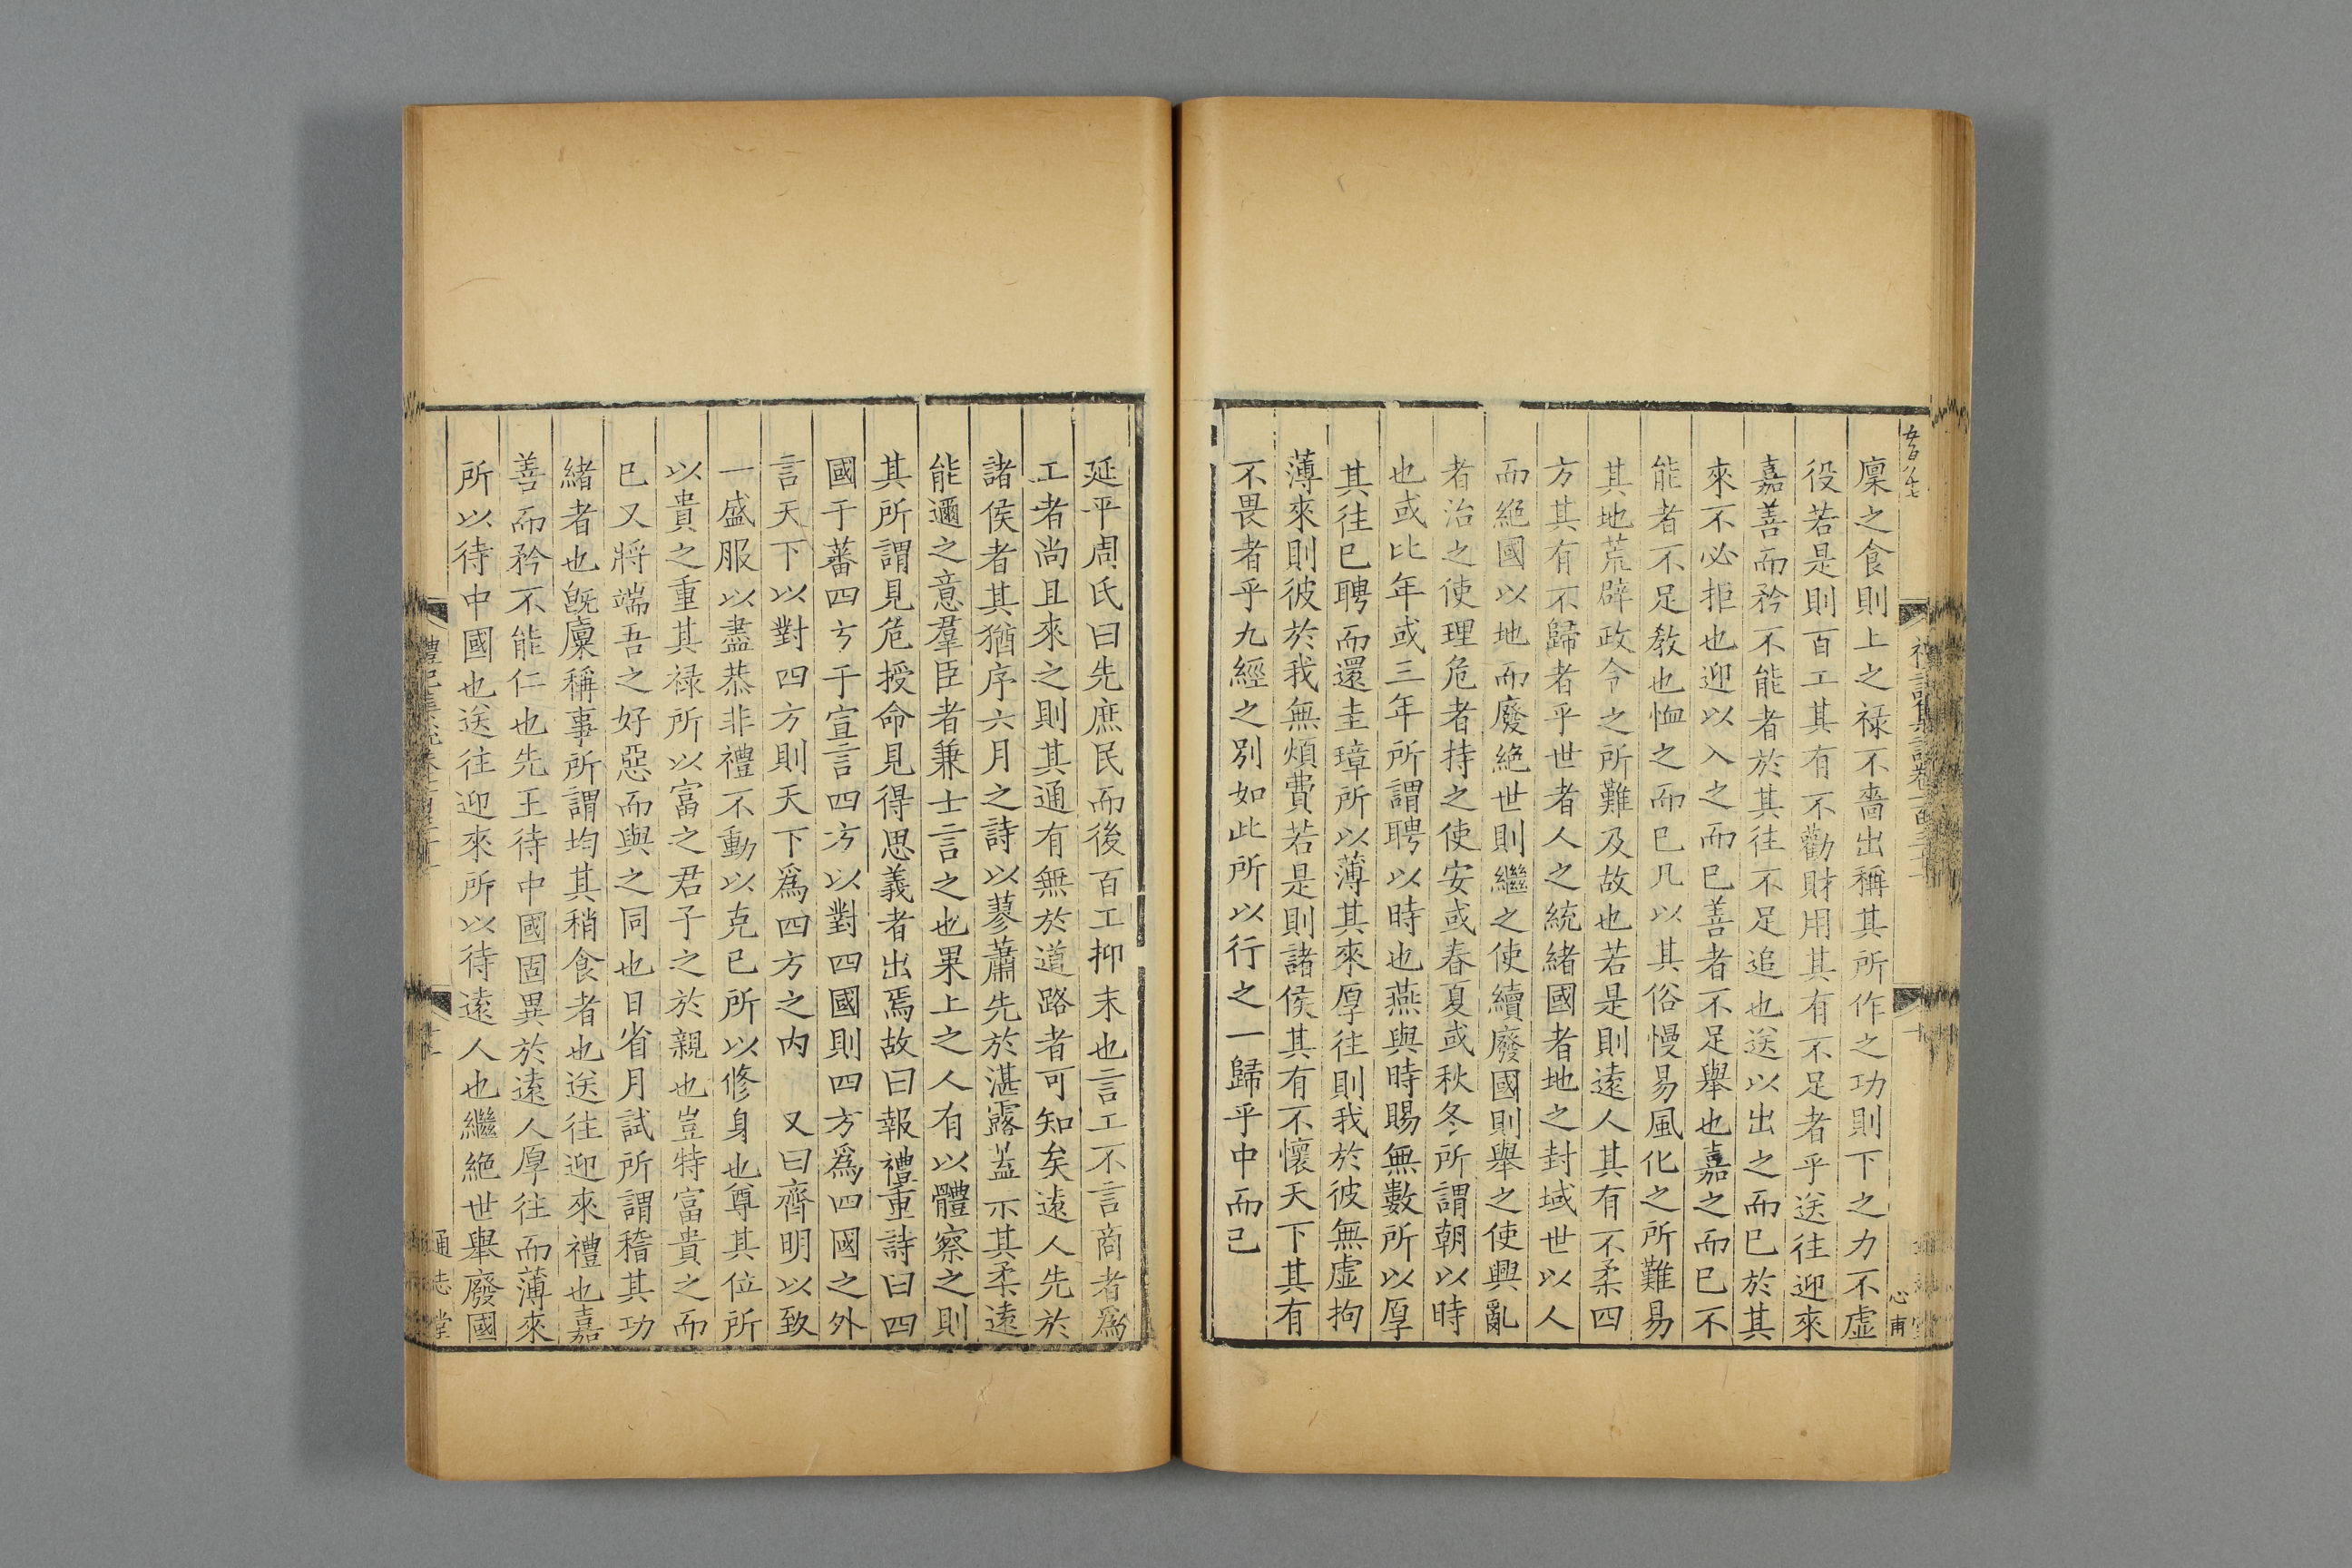 廩之食則上之禄不嗇出稱其所作之功則下之力不虛
役若是則百工其有不勸財用其有不足者乎送往迎來
嘉善而矜不能者於其往不足追也送以出之而已於其
來不必拒也迎以入之而已善者不足舉也嘉之而已不
能者不足敎也恤之而已凡以其俗慢易風化之所難易
其地荒辟政令之所難及故也若是則逺人其有不柔四
方其有不歸者乎世者人之統緒國者地之封域世以人
而絕國以地而廢絕世則繼之使續廢國則舉之使興亂
者治之使理危者持之使安或春夏或秋冬所謂朝以時
也或比年或三年所謂聘以時也燕與時賜無數所以厚
其往已聘而還圭璋所以薄其來厚往則我於彼無虛拘
薄來則彼於我無煩費若是則諸侯其有不懷天下其有
不畏者乎九經之別如此所以行之一歸乎中而已
延平周氏曰先庶民而後百工抑末也言工不言商者爲
工者尚且來之則其通有無於道路者可知矣逺人先於
諸侯者其猶序六月之詩以蓼蕭先於湛露葢示其柔逺
能邇之意羣臣者兼士言之也果上之人有以體察之則
其所謂見危授命見得思義者出焉故曰報禮重詩曰四
國于蕃四方于宣言四方以對四國則四方爲四國之外
言天下以對四方則天下爲四方之內 又曰齊明以致
一盛服以盡恭非禮不動以克已所以修身也尊其位所
以貴之重其禄所以富之君子之於親也豈特富貴之而
已又將端吾之好惡而與之同也日省月試所謂稽其功
緒者也旣廩稱事所謂均其稍食者也送往迎來禮也嘉
善而矜不能仁也先王待中國固異於逺人厚往而薄來
所以待中國也送往迎來所以待逺人也繼絕世舉廢國
通志堂